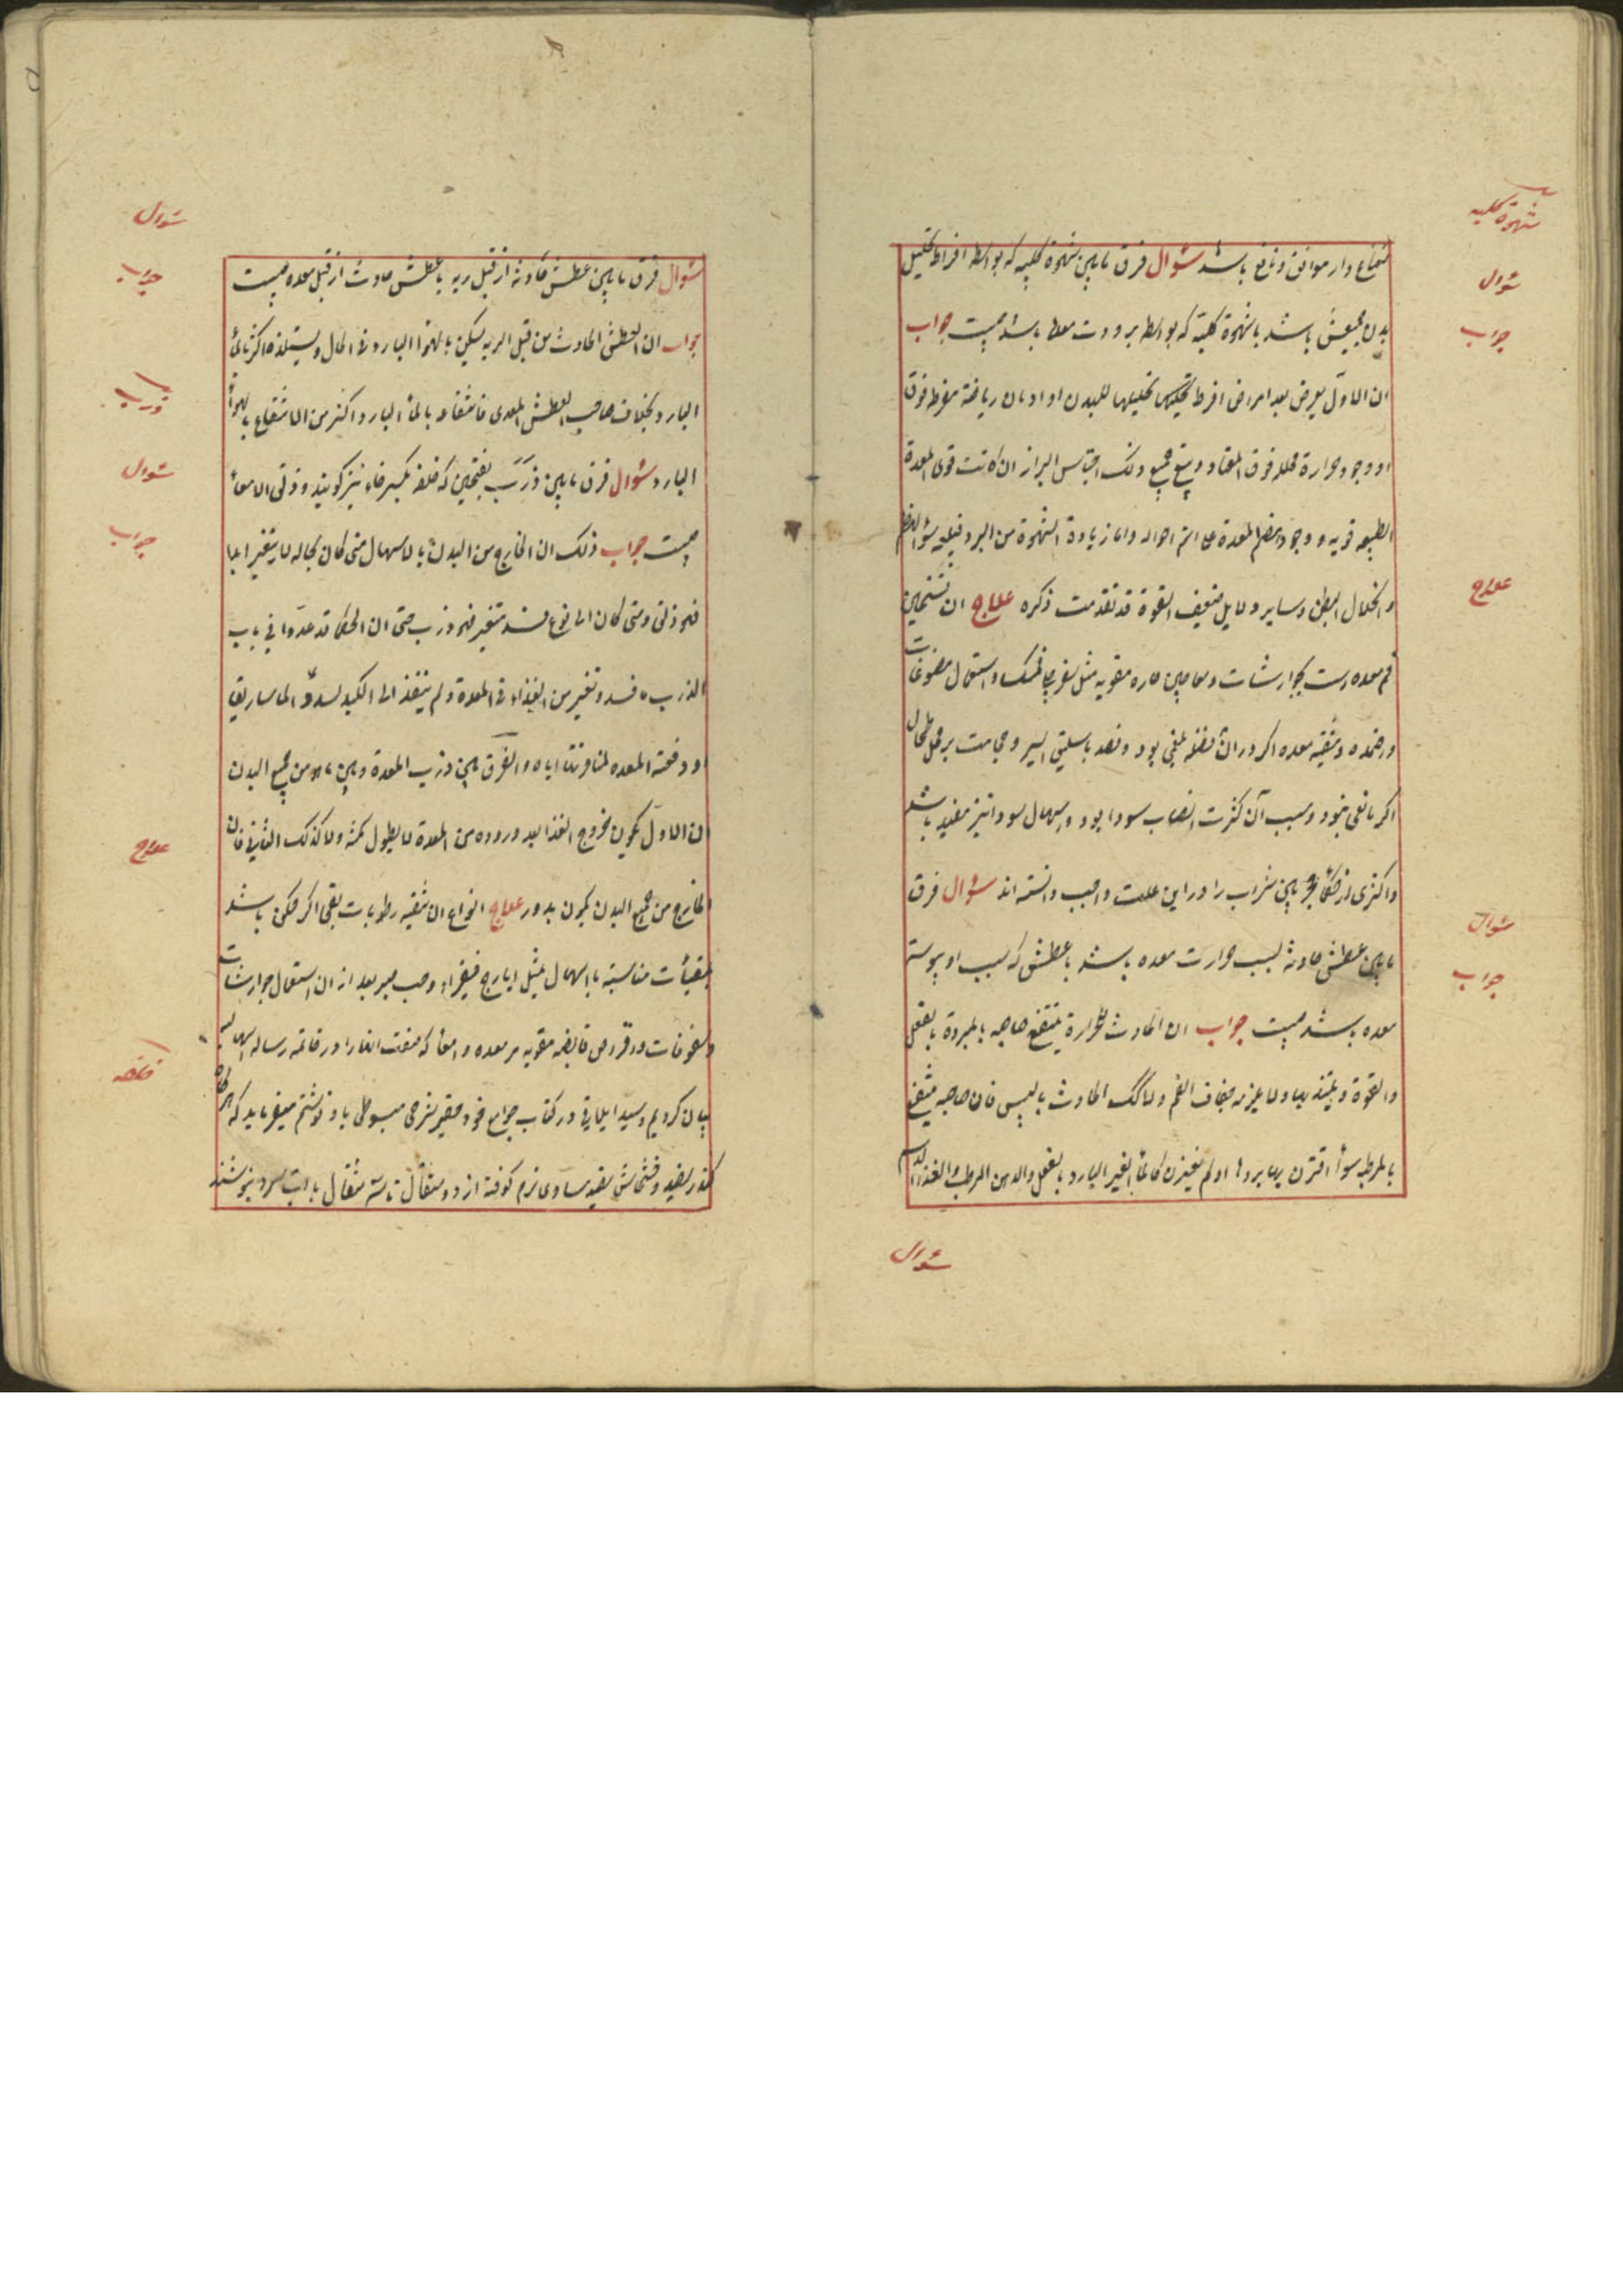 شهوة كلبيه
سؤال
جواب
علاج
سؤال
جواب
موافق و نافع باشد سؤال فرق مابین شهوة كلبیه كه بواسطه افراط تحلیل
بدن باشد با شهوة كلبیه كه بواسطه برودت معده باشد چیست جواب
ان الاول یعرض بعد امراض افرط تحلیلها للبدن او ادمان ریاضة مفرطه فوق
او وجود حرارة محلله فوق المعتاد و یتبع جمیع ذلك احتباس البراز ان كانت قوی المعدة
الطبیعه قویه و وجود هضم المعدة علی اتم احواله و اما زیادة الشهوة من البرد فیلیه سؤ الهضم
و انحلال البطن و سایر دلایل ضعف القوة قد تقدمت ذكره علاج ان تسخین
فم معده است بجوارشات و معاجین حاره مقویه مثل و استعمال مضوغات
و تنقیه معده اكر در ان فضله بلغمی بود و فصد باسلیق ایسر و حجامت بر محل طحال
اكر مانعی نبود و سبب آن كثرت انصباب سودا بود و اسهال سودا نیز مفید باشد
و اكثری از حكما شراب را در این علت واجب دانسته اند سؤال فرق
مابین عطش حادثه بسبب حرارت معده باشد با عطشی كه سبب او یبوست
معده باشد چیست جواب ان الحادث للحرارة ینتفع صاحبه بالمبردة بالفعل
و القوة و یلتذ بها و لا جفاف الفم و لا كك الحادث بالیبس فان صاحبه ینتفع
بالمرطب سوأ اقترن بها برد ما او لم یقترن كالمأ الغیر البارد بالفعل و الدهن المرطب و الغذا
سؤال
سؤال
جواب
ذرب
سؤال
جواب
علاج
سؤال فرق مابین عطش حادثه از قبل ریه با عطش حادث از قبل معده چیست
جواب ان العطش الحادث من قبل الریه یسكن بالهوا البارد فی الحال و یستلذه اكثر بالمأ
البارد بخلاف صاحب العطش المعدی فانتفاعه بالمأ البارد اكثر من الانتفاع بالهوأ
البارد سؤال فرق مابین ذَرَب بفتحتین كه خلفه بكسر خاء نیز كویند و زلق الامعأ
چیست جواب ذلك ان الخارج من البدن بالاسهال متی كان بحاله لا یتغیر
فهو زلق و متی كان الی نوع فسد متغیر فهو ذرب حتی ان الحكما قد عدّوا فی باب
الذرب ما فسد و تغیر من الغذاء فی المعدة و لم ینفذ الی الكبد لسدد الماساریقا
او دفعته المعده لمنافرتها ایاه و الفرق بین ذرب المعدة و بین ماهو من جمیع البدن
ان الاول یكون خروج الغذا بعد وروده من المعدة لا یطول مكثه و لا كذلك الثانی فان
الخارج من جمیع البدن یكون بدور علاج انواع ان تنقیه رطوبات بقی اكر ممكن باشد
بمقیأت مناسبة یا اسهال بمثل ایارج فیقراء و حب صبر بعد از ان استعمال جوارشات
و سفوفات و قروص قابضه مقویه مر معده و امعا كه صفت انها را در خاتمه رساله اسهالیه
بیان كردیم و سید ایلاقی در كتاب جوامع خود شرحی مبسوطی باو نوشتم میفرماید كه
كندر سفید و خشخاش سفید مساوی نرم كوفته از دو مثقال تا سه مثقال با آب سرد بنوشند